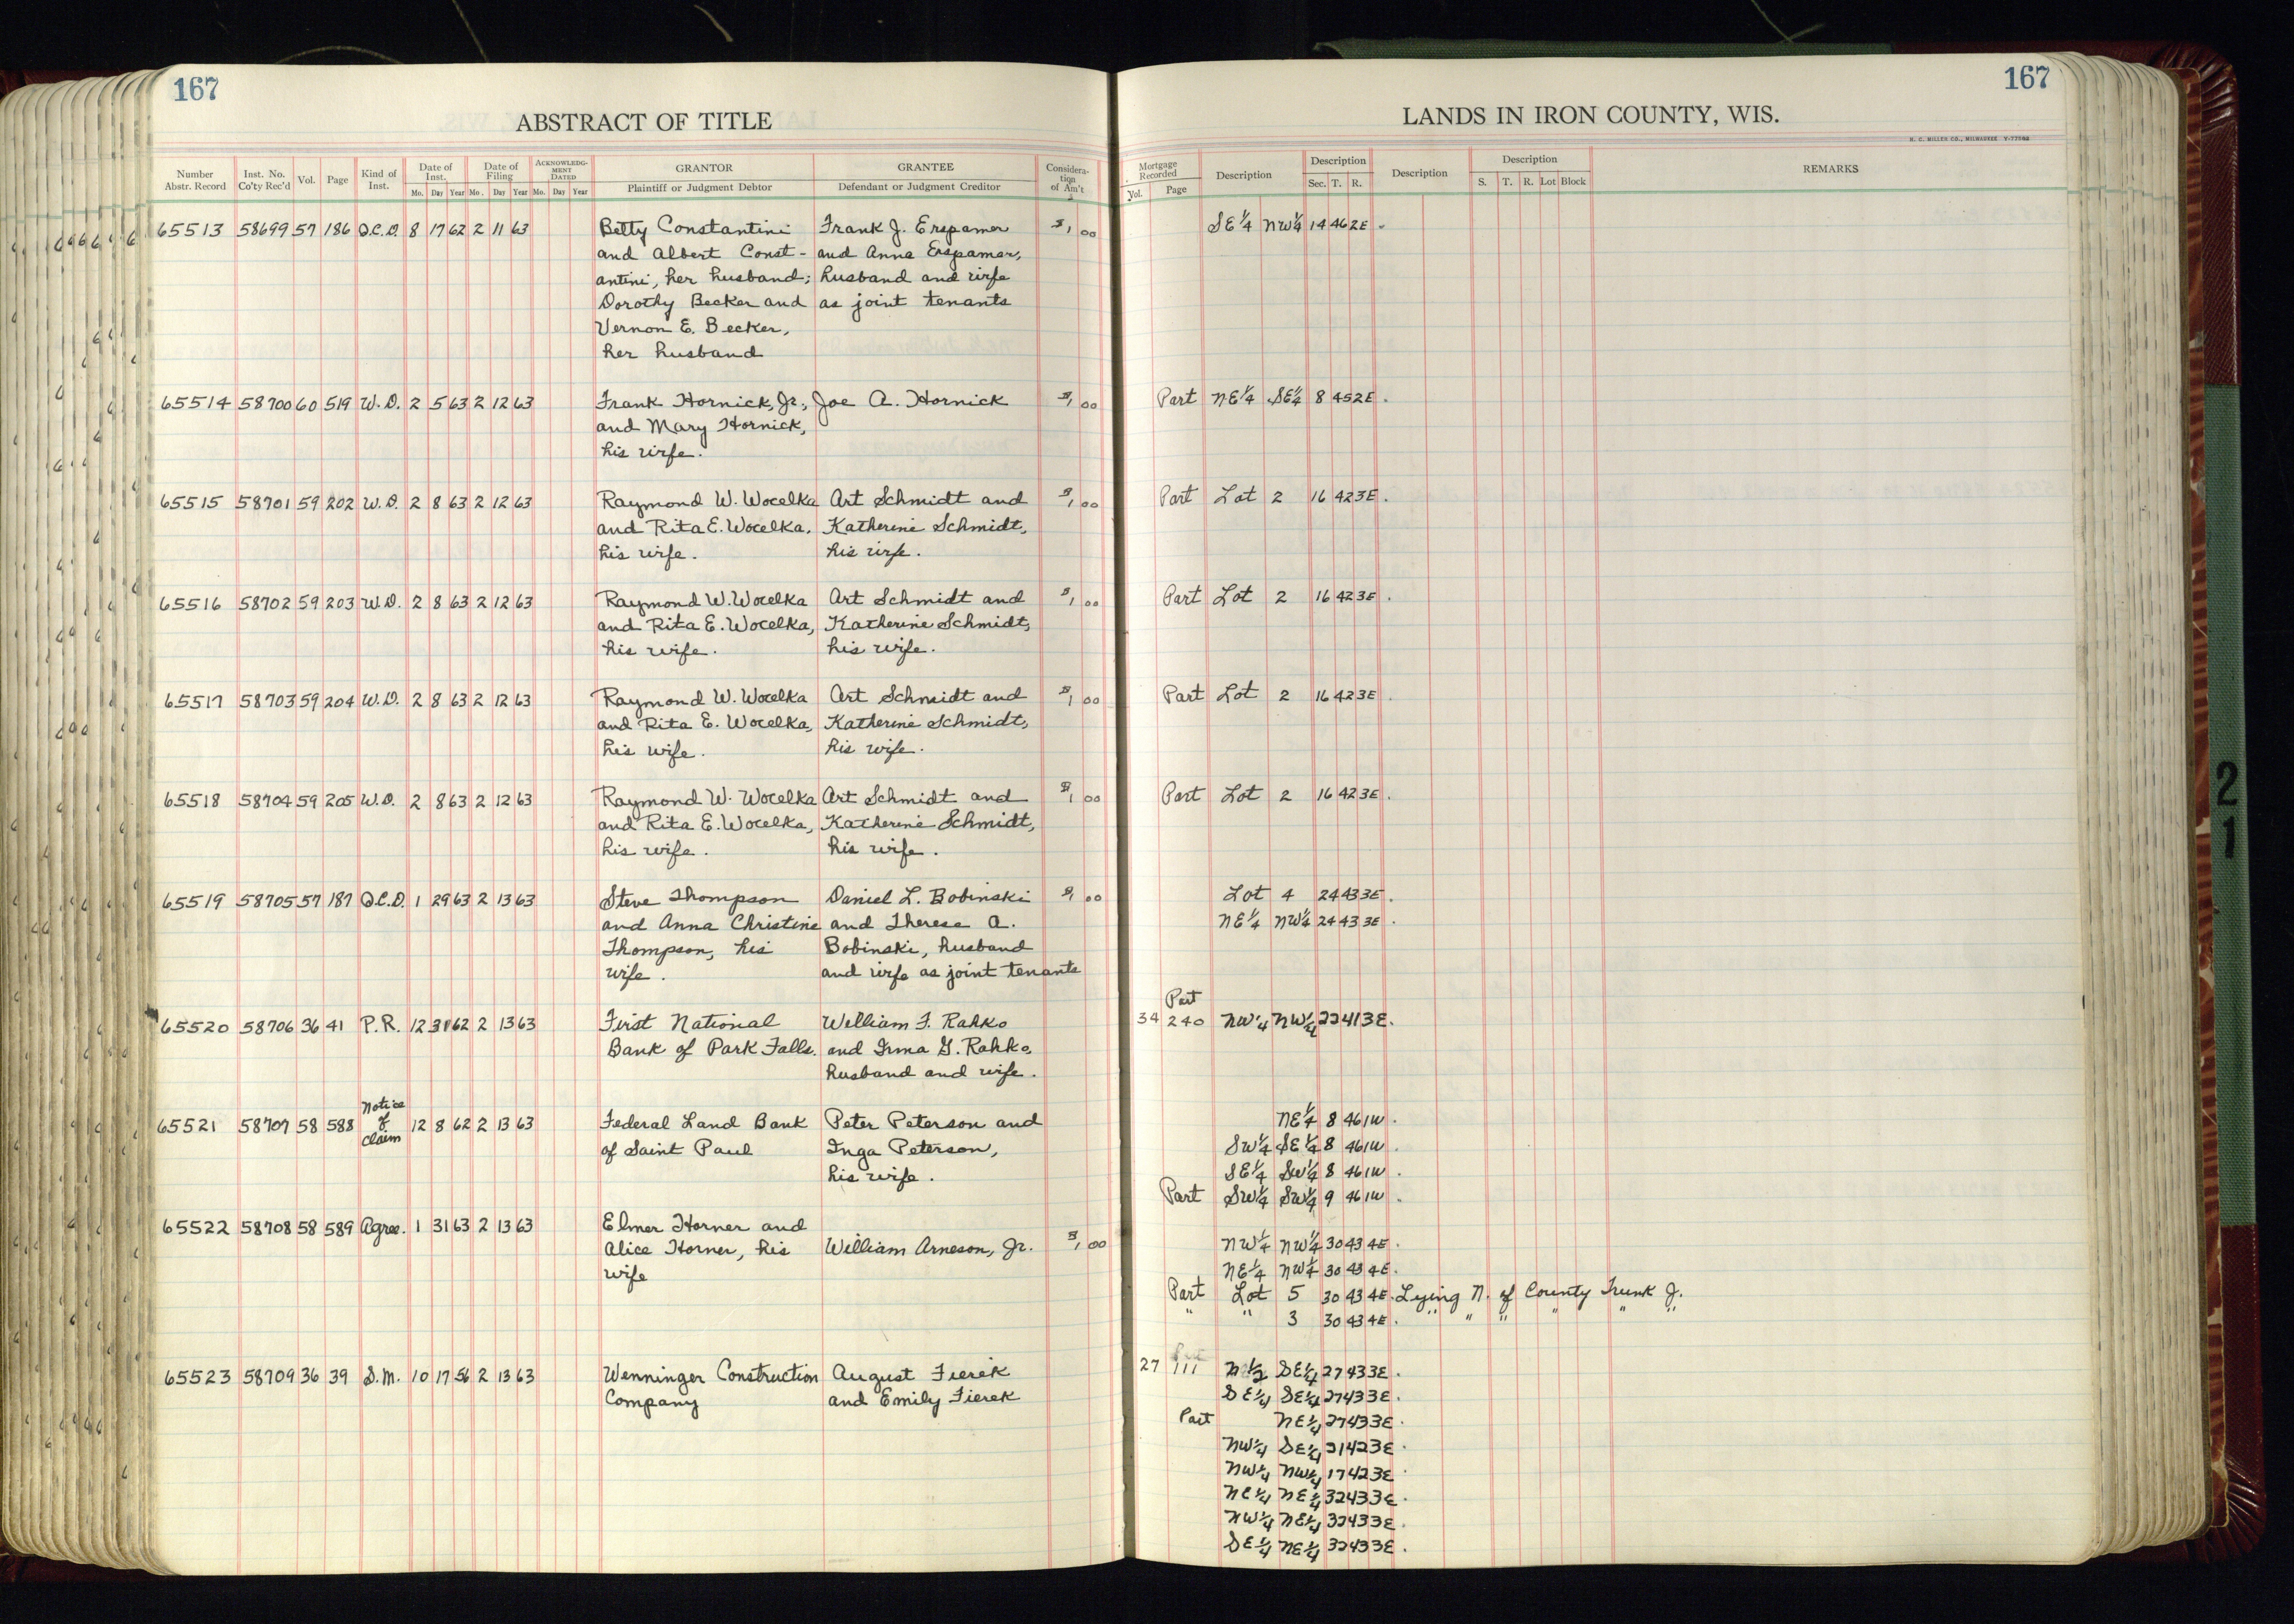 167
ABSTRACT OF TITLE
Number Abstr. Record | Inst. No. Co'ty Rec'd | Vol. | Page | Kind of Inst. | Date of Inst. Mo. Day Year | Date of Filing Mo. Day Year | ACKNOWLEDGMENT DATED Mo. Day Year | GRANTOR Plaintiff or Judgment Debtor | GRANTEE Defendant or Judgment Creditor | Consideration of Am't
65513 58699 57 186 Q.C.D. 8 17 62 2 11 63 Betty Constantini Frank J. Erspamer $1,00
and Albert Const- and Anna Erspamer,
antini, her husband; husband and wife
Dorothy Becker and as joint tenants
Vernon E. Becker,
her husband
65514 58700 60 519 W.D. 2 5 63 2 12 63 Frank Hornick, Jr., Joe A. Hornick $1,00
and Mary Hornick,
his wife.
65515 58701 59 202 W.D. 2 8 63 2 12 63 Raymond W. Wocelka Art Schmidt and $1,00
and Rita E. Wocelka, Katherine Schmidt,
his wife. his wife.
65516 58702 59 203 W.D. 2 8 63 2 12 63 Raymond W. Wocelka Art Schmidt and $1,00
and Rita E. Wocelka, Katherine Schmidt,
his wife. his wife.
65517 58703 59 204 W.D. 2 8 63 2 12 63 Raymond W. Wocelka Art Schmidt and $1,00
and Rita E. Wocelka, Katherine Schmidt,
his wife. his wife.
65518 58704 59 205 W.D. 2 8 63 2 12 63 Raymond W. Wocelka Art Schmidt and $1,00
and Rita E. Wocelka, Katherine Schmidt,
his wife. his wife.
65519 58705 57 187 Q.C.D. 1 29 63 2 13 63 Steve Thompson Daniel L. Bobinski $1,00
and Anna Christine and Therese A.
Thompson, his Bobinski, husband
wife. and wife as joint tenants
65520 58706 36 41 P.R. 12 31 62 2 13 63 First National William F. Rahko
Bank of Park Falls. and Irma G. Rahko,
husband and wife.
Notice
65521 58707 58 588 of 12 8 62 2 13 63 Federal Land Bank Peter Peterson and
claim
of Saint Paul Inga Peterson,
his wife.
65522 58708 58 589 Agree. 1 31 63 2 13 63 Elmer Horner and
Alice Horner, his William Arneson, Jr. $1,00
wife
65523 58709 36 39 S.M. 10 17 56 2 13 63 Wenninger Construction August Fierek
Company and Emily Fierek
167
LANDS IN IRON COUNTY, WIS.
H. C. MILLER CO., MILWAUKEE Y-77098
Mortgage Recorded Vol. Page | Description | Description Sec. T. R. | Description | Description S. T. R. Lot Block | REMARKS
SE¼ NW¼ 14 46 2E.
Part NE¼ SE¼ 8 45 2E.
Part Lot 2 16 42 3E.
Part Lot 2 16 42 3E.
Part Lot 2 16 42 3E.
Part Lot 2 16 42 3E.
Lot 4 24 43 3E.
NE¼ NW¼ 24 43 3E.
Part
34 240 NW¼ NW¼ 22 41 3E.
NE¼ 8 46 1W.
SW¼ SE¼ 8 46 1W
SE¼ SW¼ 8 46 1W.
Part SW¼ SW¼ 9 46 1W.
NW¼ NW¼ 30 43 4E.
NE¼ NW¼ 30 43 4E.
Part Lot 5 30 43 4E. Lying N. of County Trunk J.
" " 3 30 43 4E. " " " " " "
27 111 N½ SE¼ 27 43 3E.
SE¼ SE¼ 27 43 3E.
Part NE¼ 27 43 3E.
NW¼ SE¼ 21 42 3E.
NW¼ NW¼ 17 42 3E.
NE¼ NE¼ 32 43 3E.
NW¼ NE¼ 32 43 3E.
SE¼ NE¼ 32 43 3E.
21